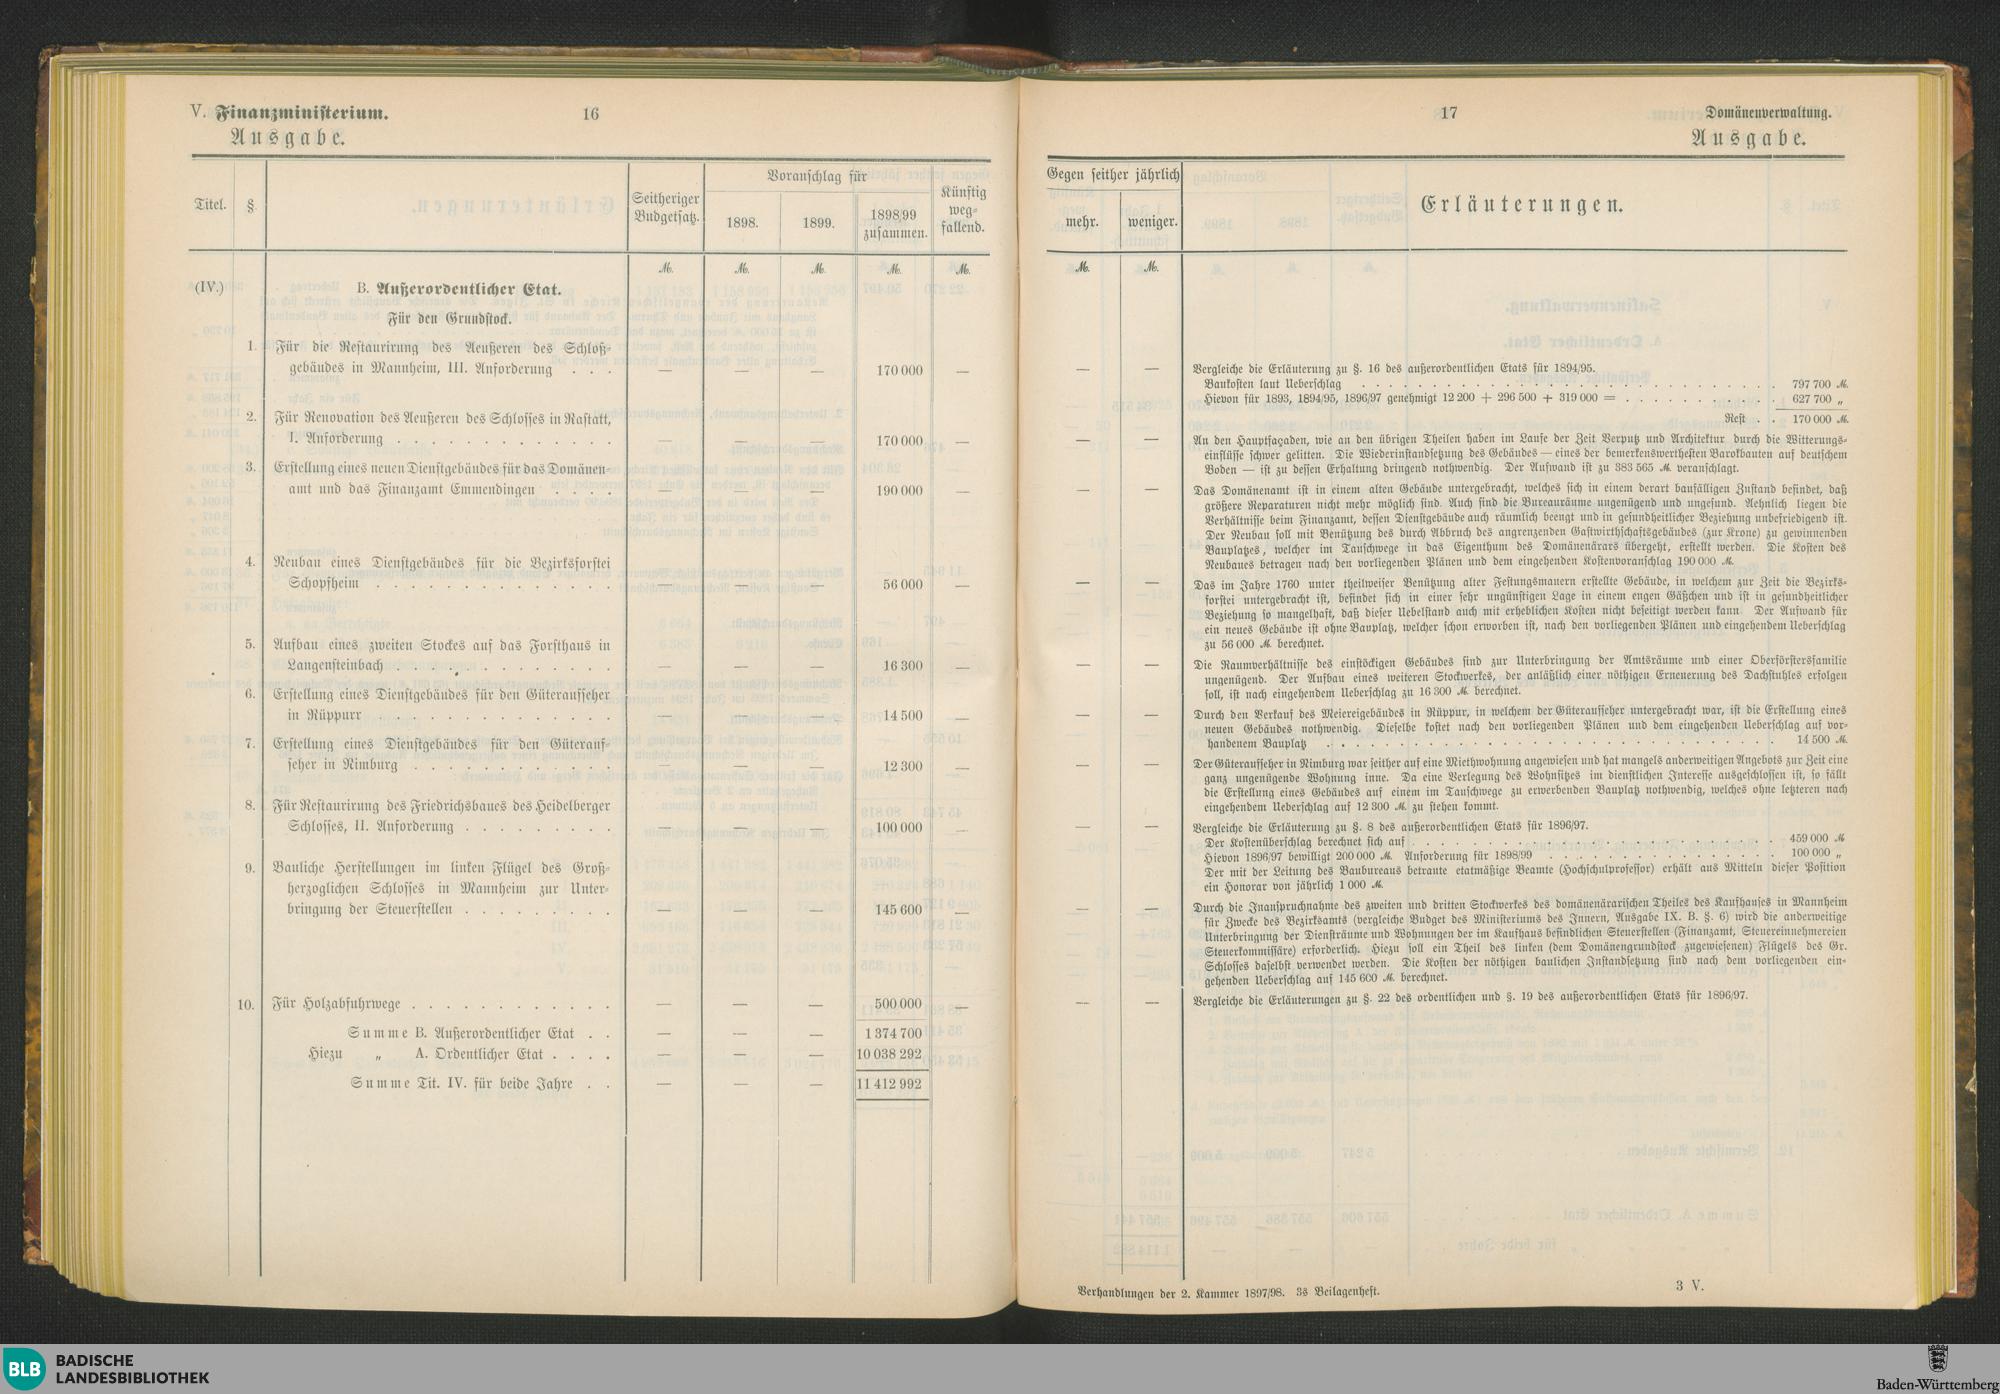 V. Finanzministerium.
16
Ausgabe.
Titel.
§.
Seitheriger Budgetsatz.
Voranschlag für
1898.
1899.
1898/99 zusammen.
Künftig weg-
fallend.
M. M. M. M. M.
(IV.) B. Außerordentlicher Etat.
Für den Grundstock.
1. Für die Restaurirung des Aeußeren des Schloß-
gebäudes in Mannheim, III. Anforderung . . . — — — 170 000 —
2. Für Renovation des Aeußeren des Schlosses in Rastatt,
I. Anforderung . . . . . . . . . . . . — — — 170 000 —
3. Erstellung eines neuen Dienstgebäudes für das Domänen-
amt und das Finanzamt Emmendingen . . . . — — — 190 000 —
4. Neubau eines Dienstgebäudes für die Bezirksforstei
Schopfheim . . . . . . . . . . . . — — — 56 000 —
5. Aufbau eines zweiten Stockes auf das Forsthaus in
Langensteinbach . . . . . . . . . . . — — — 16 300 —
6. Erstellung eines Dienstgebäudes für den Güteraufseher
in Rüppurr . . . . . . . . . . . . — — — 14 500 —
7. Erstellung eines Dienstgebäudes für den Güterauf-
seher in Nimburg . . . . . . . . . . — — — 12 300 —
8. Für Restaurirung des Friedrichsbaues des Heidelberger
Schlosses, II. Anforderung . . . . . . . . . — — — 100 000 —
9. Bauliche Herstellungen im linken Flügel des Groß-
herzoglichen Schlosses in Mannheim zur Unter-
bringung der Steuerstellen . . . . . . . . . — — — 145 600 —
10. Für Holzabfuhrwege . . . . . . . . . . . — — — 500 000 —
Summe B. Außerordentlicher Etat . . — — — 1 374 700
Hiezu „ A. Ordentlicher Etat . . . . — — — 10 038 292
Summe Tit. IV. für beide Jahre . . — — — 11 412 992
17
Domänenverwaltung.
Ausgabe.
Gegen seither jährlich
mehr.
weniger.
Erläuterungen.
M. M.
— — Vergleiche die Erläuterung zu §. 16 des außerordentlichen Etats für 1894/95.
Baukosten laut Ueberschlag . . . . . . . . . . 797 700 M.
Hievon für 1893, 1894/95, 1896/97 genehmigt 12 200 + 296 500 + 319 000 = . . . . . . 627 700 „
Rest . . 170 000 M.
— — An den Hauptfaçaden, wie an den übrigen Theilen haben im Laufe der Zeit Verputz und Architektur durch die Witterungs-
einflüsse schwer gelitten. Die Wiederinstandsetzung des Gebäudes — eines der bemerkenswerthesten Barokbauten auf deutschem
Boden — ist zu dessen Erhaltung dringend nothwendig. Der Aufwand ist zu 383 565 M. veranschlagt.
— — Das Domänenamt ist in einem alten Gebäude untergebracht, welches sich in einem derart baufälligen Zustand befindet, daß
größere Reparaturen nicht mehr möglich sind. Auch sind die Bureauräume ungenügend und ungesund. Aehnlich liegen die
Verhältnisse beim Finanzamt, dessen Dienstgebäude auch räumlich beengt und in gesundheitlicher Beziehung unbefriedigend ist.
Der Neubau soll mit Benützung des durch Abbruch des angrenzenden Gastwirthschaftsgebäudes (zur Krone) zu gewinnenden
Bauplatzes, welcher im Tauschwege in das Eigenthum des Domänenärars übergeht, erstellt werden. Die Kosten des
Neubaues betragen nach den vorliegenden Plänen und dem eingehenden Kostenvoranschlag 190 000 M.
— — Das im Jahre 1760 unter theilweiser Benützung alter Festungsmauern erstellte Gebäude, in welchem zur Zeit die Bezirks-
forstei untergebracht ist, befindet sich in einer sehr ungünstigen Lage in einem engen Gäßchen und ist in gesundheitlicher
Beziehung so mangelhaft, daß dieser Uebelstand auch mit erheblichen Kosten nicht beseitigt werden kann. Der Aufwand für
ein neues Gebäude ist ohne Bauplatz, welcher schon erworben ist, nach den vorliegenden Plänen und eingehendem Ueberschlag
zu 56 000 M. berechnet.
— — Die Raumverhältnisse des einstöckigen Gebäudes sind zur Unterbringung der Amtsräume und einer Oberförstersfamilie
ungenügend. Der Aufbau eines weiteren Stockwerkes, der anläßlich einer nöthigen Erneuerung des Dachstuhles erfolgen
soll, ist nach eingehendem Ueberschlag zu 16 300 M. berechnet.
— — Durch den Verkauf des Meiereigebäudes in Rüppur, in welchem der Güteraufseher untergebracht war, ist die Erstellung eines
neuen Gebäudes nothwendig. Dieselbe kostet nach den vorliegenden Plänen und dem eingehenden Ueberschlag auf vor-
handenem Bauplatz . . . . . . . . . . 14 500 M.
— — Der Güteraufseher in Nimburg war seither auf eine Miethwohnung angewiesen und hat mangels anderweitigen Angebots zur Zeit eine
ganz ungenügende Wohnung inne. Da eine Verlegung des Wohnsitzes im dienstlichen Interesse ausgeschlossen ist, so fällt
die Erstellung eines Gebäudes auf einem im Tauschwege zu erwerbenden Bauplatz nothwendig, welches ohne letzteren nach
eingehendem Ueberschlag auf 12 300 M. zu stehen kommt.
— — Vergleiche die Erläuterung zu §. 8 des außerordentlichen Etats für 1896/97.
Der Kostenüberschlag berechnet sich auf . . . . . . . . . . 459 000 M
Hievon 1896/97 bewilligt 200 000 M. Anforderung für 1898/99 . . . . . . . . 100 000 „
Der mit der Leitung des Baubureaus betraute etatmäßige Beamte (Hochschulprofessor) erhält aus Mitteln dieser Position
ein Honorar von jährlich 1 000 M.
— — Durch die Inanspruchnahme des zweiten und dritten Stockwerkes des domänenärarischen Theiles des Kaufhauses in Mannheim
für Zwecke des Bezirksamts (vergleiche Budget des Ministeriums des Innern, Ausgabe IX. B. §. 6) wird die anderweitige
Unterbringung der Diensträume und Wohnungen der im Kaufhaus befindlichen Steuerstellen (Finanzamt, Steuereinnehmereien
Steuerkommissäre) erforderlich. Hiezu soll ein Theil des linken (dem Domänengrundstock zugewiesenen) Flügels des Gr.
Schlosses daselbst verwendet werden. Die Kosten der nöthigen baulichen Instandsetzung sind nach dem vorliegenden ein-
gehenden Ueberschlag auf 145 600 M. berechnet.
— — Vergleiche die Erläuterungen zu §. 22 des ordentlichen und §. 19 des außerordentlichen Etats für 1896/97.
Verhandlungen der 2. Kammer 1897/98. 3s Beilagenheft.
3 V.
BLB BADISCHE
LANDESBIBLIOTHEK
Baden-Württemberg